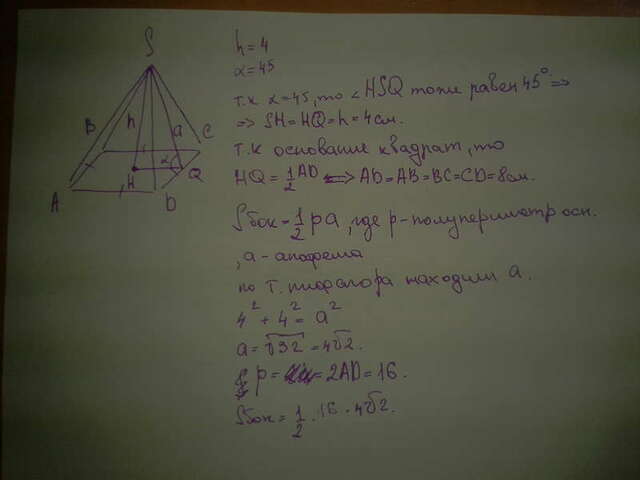 S
h = 4
α = 45
т.к α = 45, то ∠HSQ тоже равен 45° ⇒
⇒ SH = HQ = h = 4 см.
т.к основание квадрат, то
HQ = 1/2 AD ⟺ AD = AB = BC = CD = 8 см.
Sбок = 1/2 pa, где p - полупериметр осн.
, a - апофема
по т. пифагора находим a.
4² + 4² = a²
a = √32 = 4√2.
p = = 2AD = 16.
Sбок = 1/2 · 16 · 4√2.
B h a C
α
H Q
A D